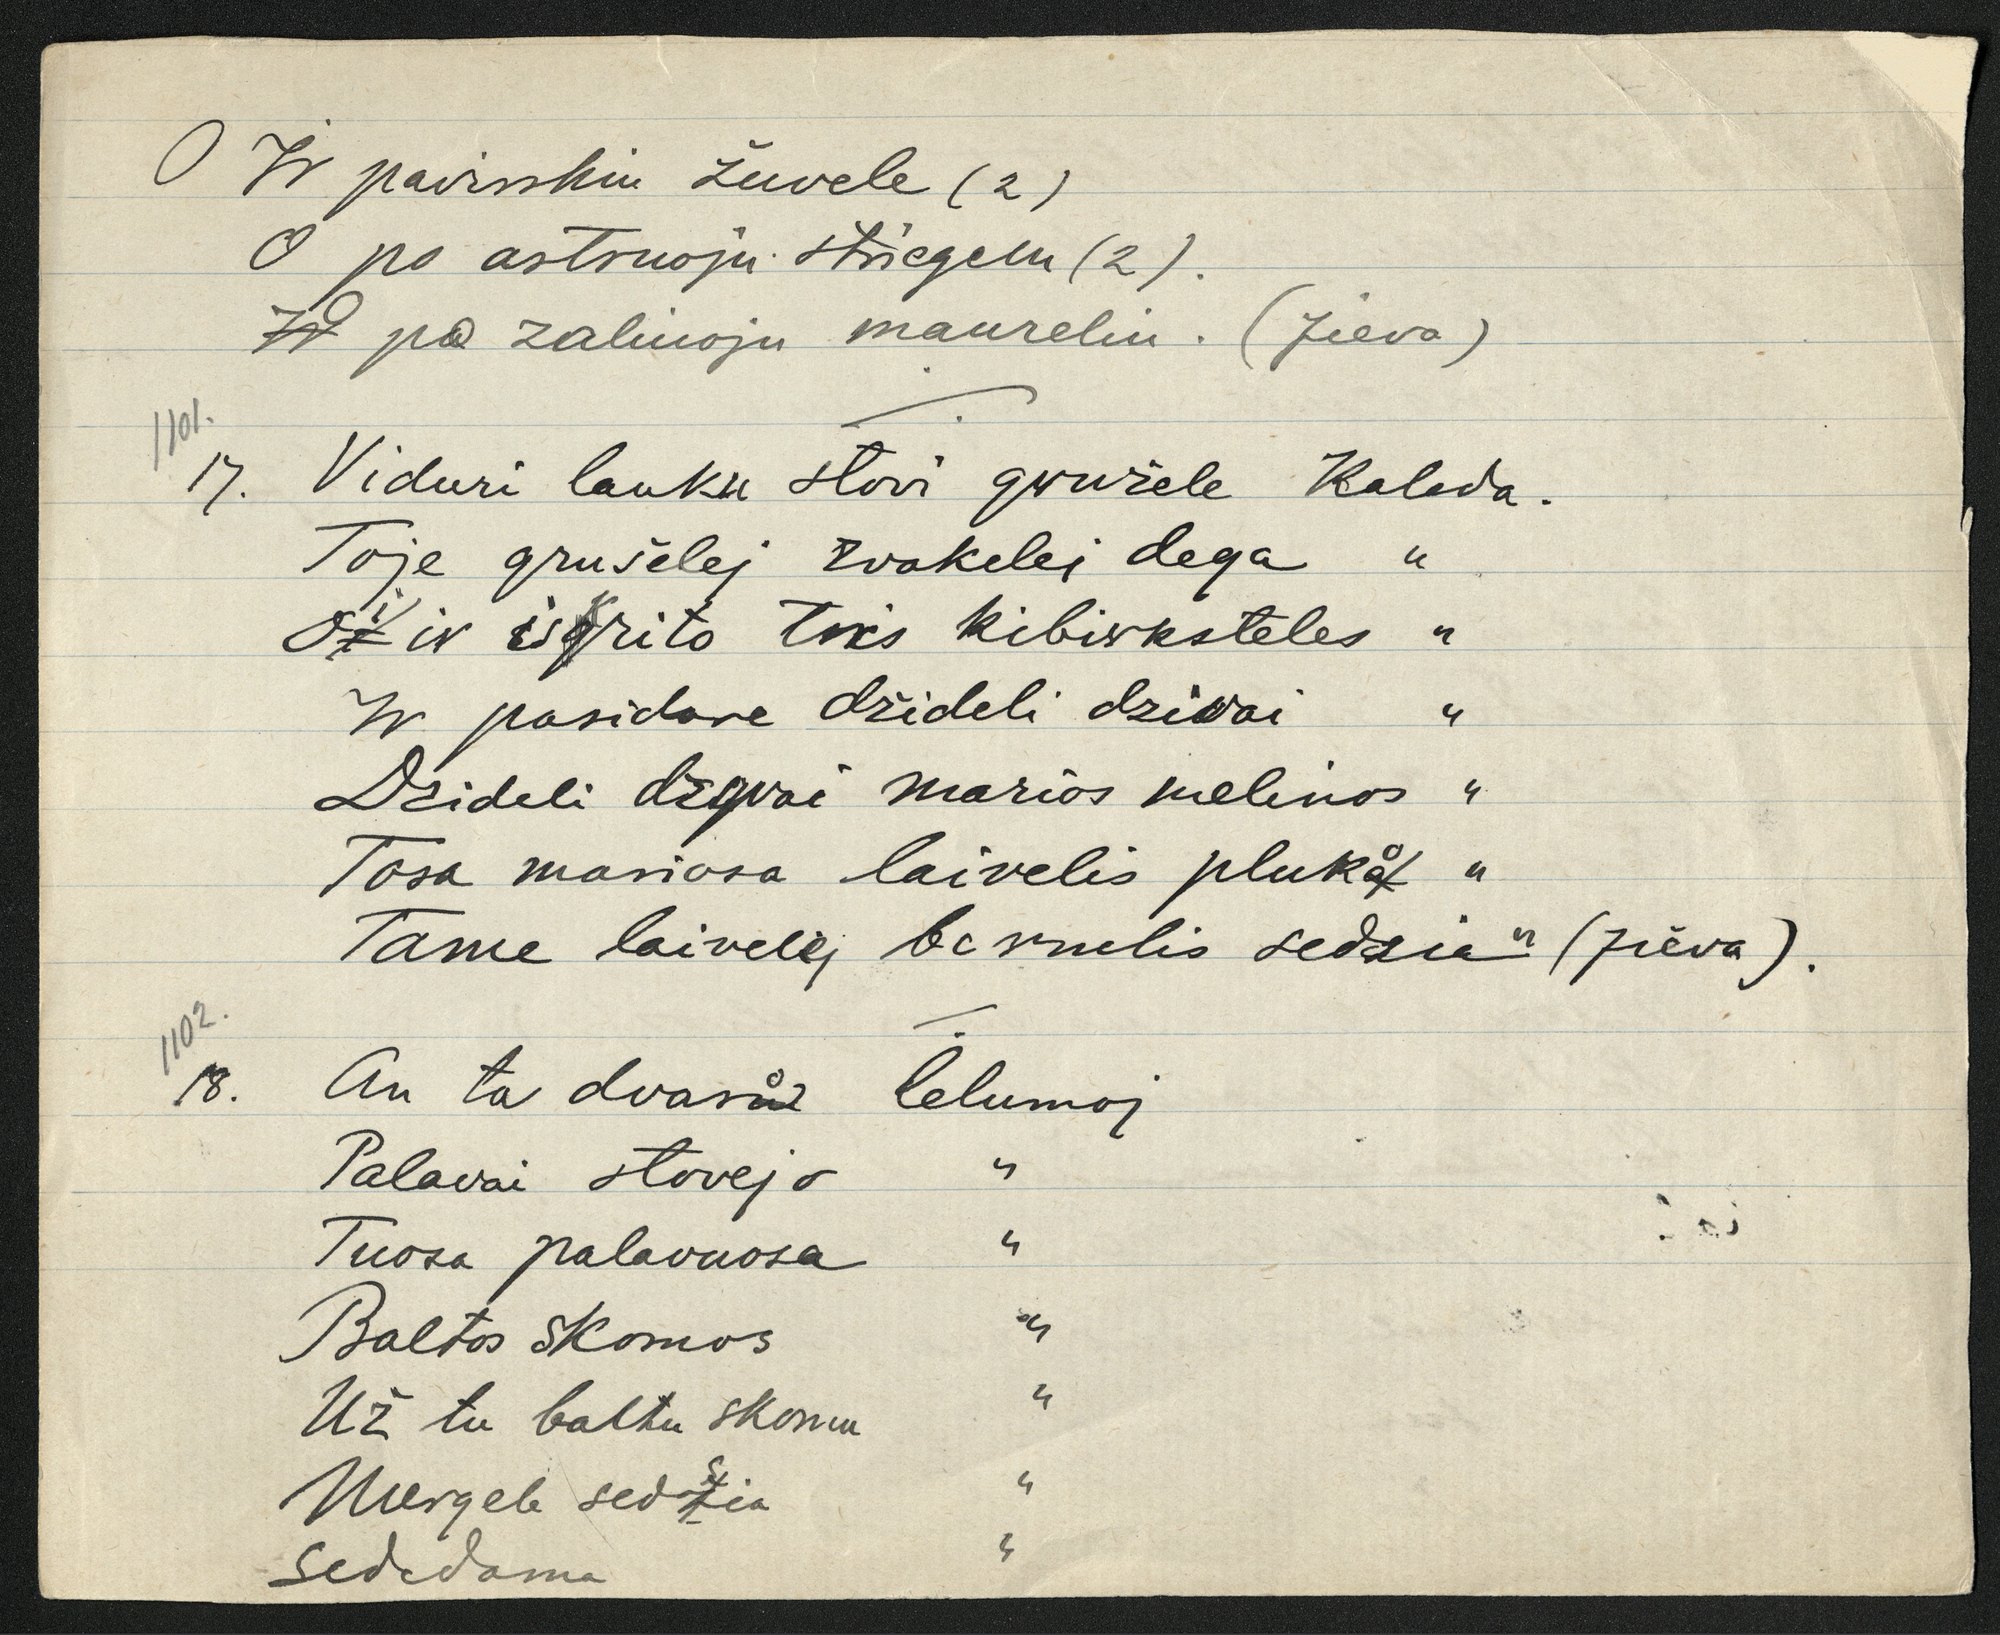 O Ir pavirskiu žuvele (2)
O po astruoju striegelu (2).
po zalinoju maureliu. (Jieva)
1101.
17. Viduri lauku stovi grušele Kaleda.
Toje grušelej zvakelei dega "
O ir iskrito toks kibirksteles "
Ir pasidare dzideli dzivai "
Dzideli dzyvai marios melinos "
Tosa mariosa laivelis pluka "
Tame laivelej bernelis sedzia " (Jieva).
1102.
18. An ta dvara lelumoj
Palavai stovejo "
Tuosa palavuosa "
Baltos skomos "
Už tu baltu skomu "
Mergele sedzia "
Sededama "